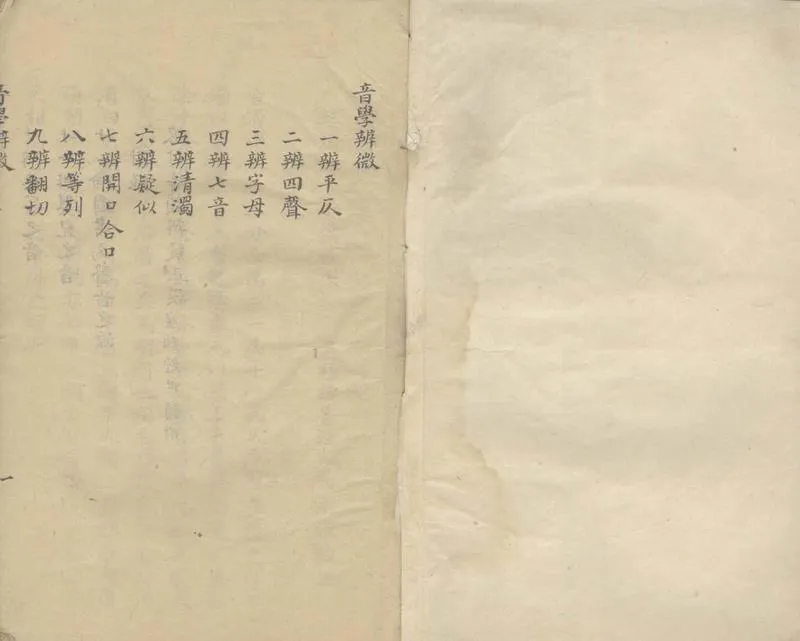 音學辨微
一辨平仄
二辨四聲
三辨字母
四辨七音
五辨清濁
六辨疑似
七辨開口合口
八辨等列
九辨翻切
音學辨微
一